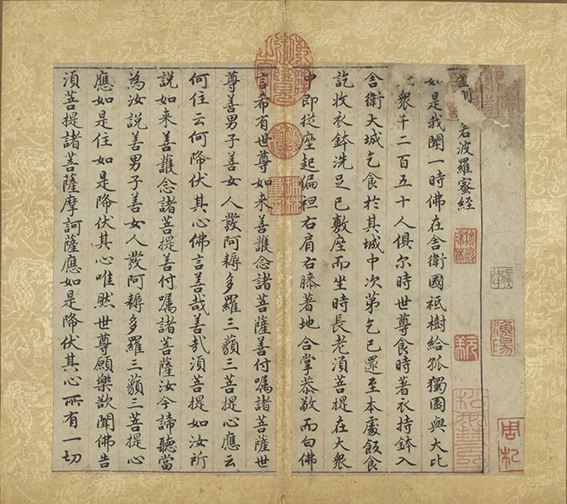 若波羅蜜經
如是我聞一時佛在舍衛國祇樹給孤獨園與大比
衆千二百五十人俱尔時世尊食時著衣持鉢入
舍衛大城乞食於其城中次第乞已還至本處飯食
訖收衣鉢洗足已敷座而坐時長老湏菩提在大衆
中即從座起偏袒右肩右膝著地合掌恭敬而白佛
言希有世尊如来善護念諸菩薩善付嘱諸菩薩世
尊善男子善女人發阿耨多羅三藐三菩提心應云
何住云何降伏其心佛言善哉善哉湏菩提如汝所
説如来善護念諸菩提善付嘱諸菩薩汝今諦聽當
為汝説善男子善女人發阿耨多羅三藐三菩提心
應如是住如是降伏其心唯然世尊願樂欲聞佛告
湏菩提諸菩薩摩訶薩應如是降伏其心所有一切